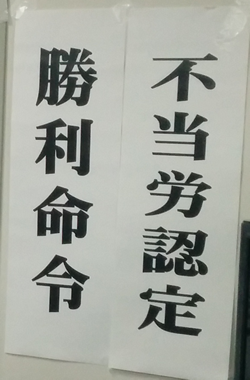 不当労認定
勝利命令